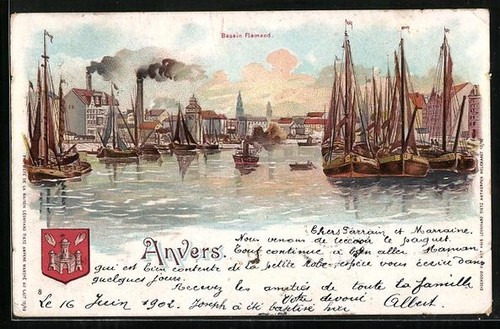 Bassin Flamand.
Anvers.
Chers Parrain et Marraine,
Nous venons de recevoir le paquet.
Tout continue à bien aller Maman
qui est bien contente de la petite Robe espère vous écrire dans
quelques jours.
Recevez les amitiés de toute la famille
Votre dévoué
Le 16 Juin 1902. Joseph a été baptisé hier Albert.
8